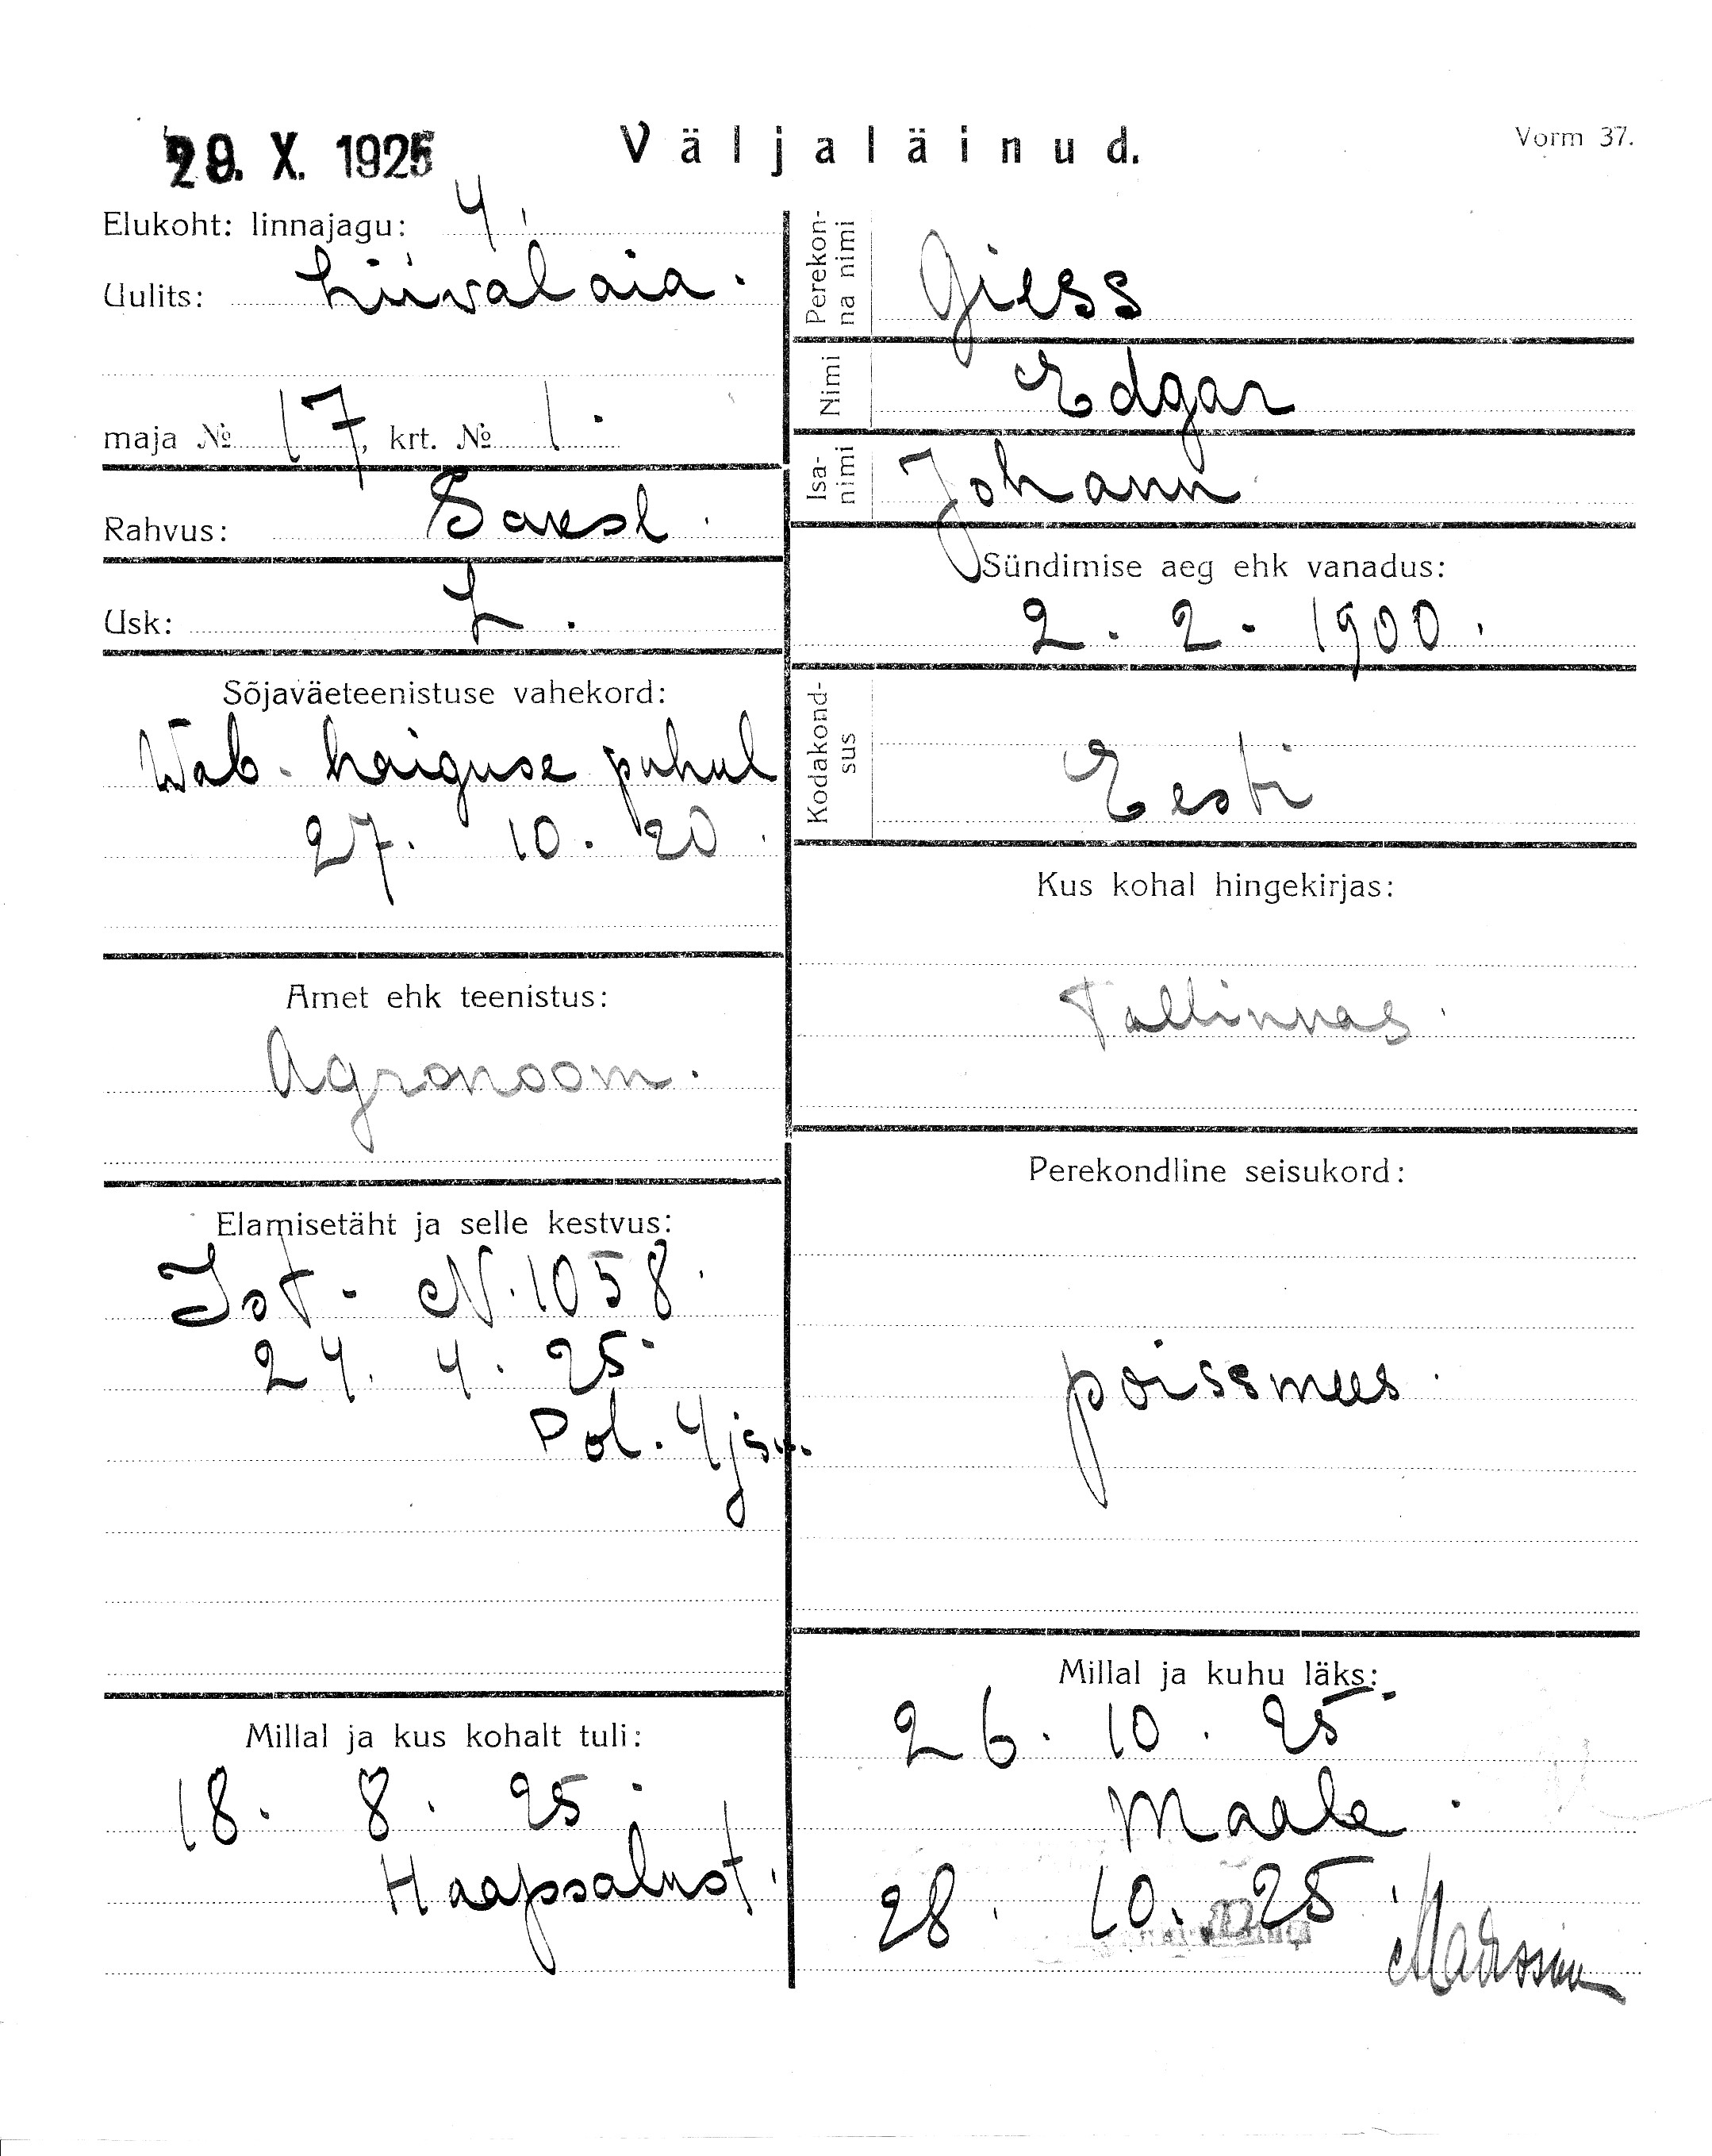 29. X. 1925
Väljaläinud.
Vorm 37.
Elukoht: linnajagu: 4.
Uulits: Liivalaia.
maja № 17, krt. № 1.
Rahvus: Saksl.
Usk: L.
Sõjaväeteenistuse vahekord:
Wab. haiguse puhul
27. 10. 20.
Amet ehk teenistus:
Agronoom.
Elamisetäht ja selle kestvus:
Ist. N. 1058.
24. 4. 25.
Pol. 4 jsk.
Millal ja kus kohalt tuli:
18. 8. 25.
Haapsalust.
Perekon-
na nimi
Giess
Nimi
Edgar
Isa-
nimi
Johann
Sündimise aeg ehk vanadus:
2. 2. 1900.
Kodakond-
sus
Eesti
Kus kohal hingekirjas:
Tallinnas.
Perekondline seisukord:
poissmees.
Millal ja kuhu läks:
26. 10. 25.
Maale.
28. 10. 25.